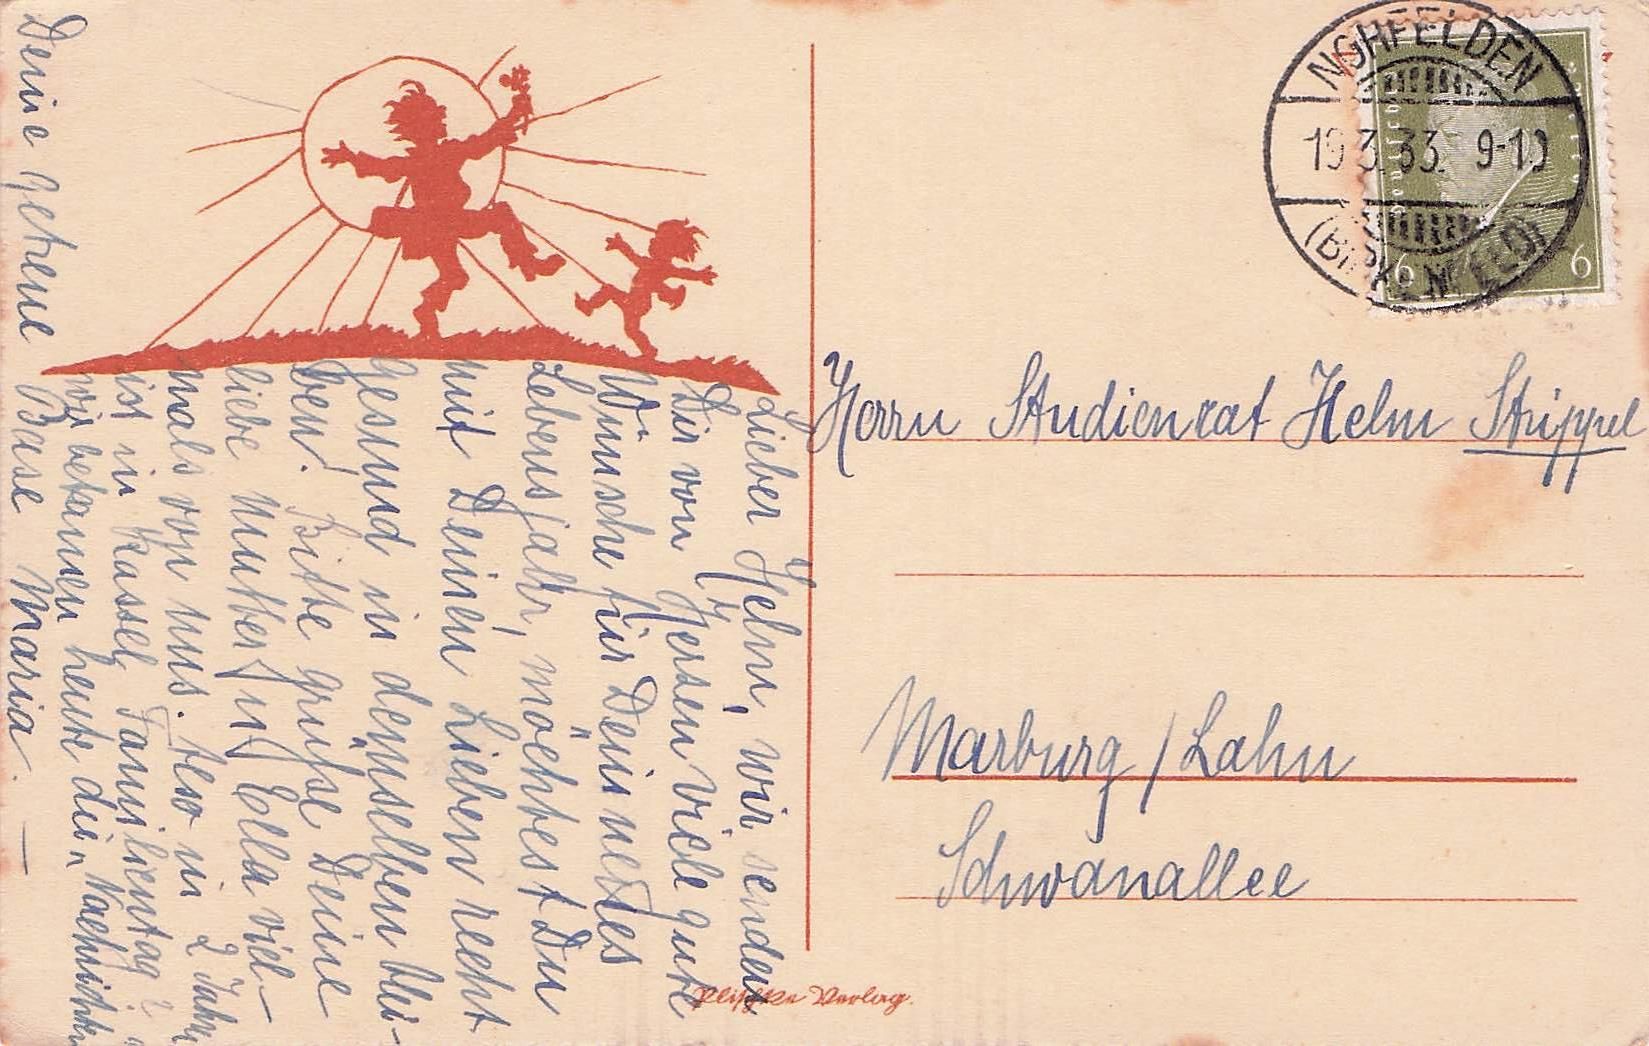 Lieber Helm, wir senden
Dir von Herzen viele gute
Wünsche für Dein neues
Lebensjahr, möchtest Du
mit Deinen Lieben recht
gesund in demselben blei-
ben! Bitte grüße Deine
liebe Mutter und Ella viel-
mals von uns. Also in 2 Jahren
ist in Kassel Familientag?
wir bekamen heute die Nachricht.
Deine getreue
Base Maria.
NOHFELDEN
19.3.33. 9-10
(BIRKENFELD)
6 6
Herrn Studienrat Helm Strippel
Marburg / Lahn
Schwanallee
Plischke Verlag.